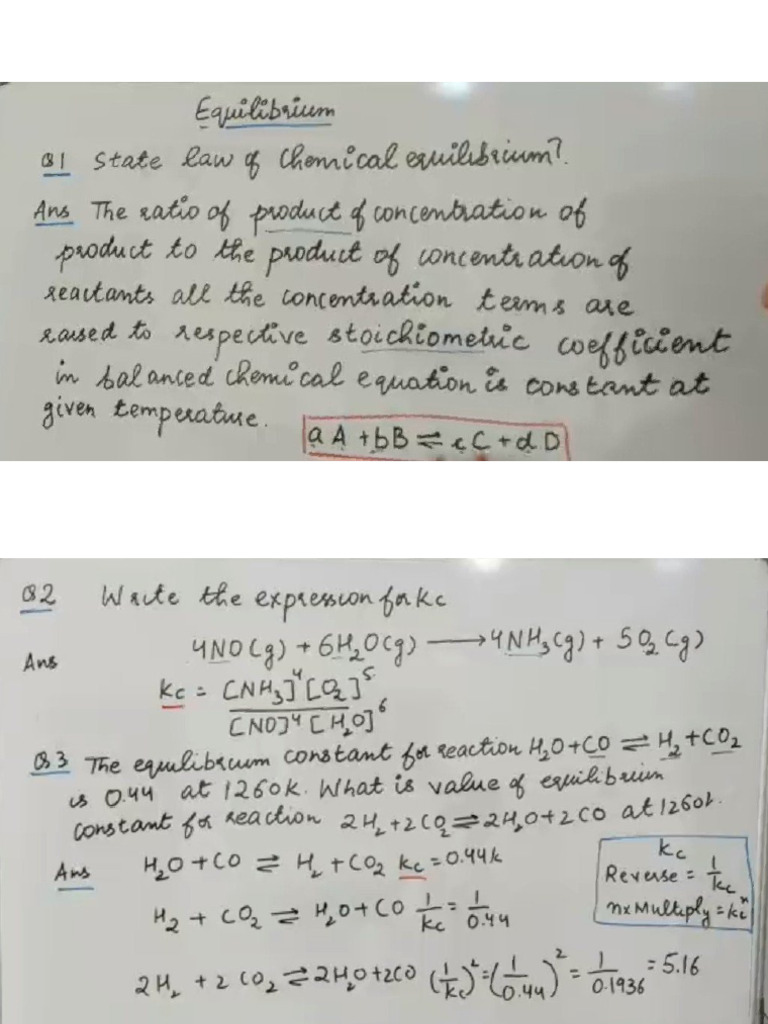 Equilibrium
Q1 State law of Chemical equilibrium?
Ans The ratio of product of concentration of
product to the product of concentration of
reactants all the concentration terms are
raised to respective stoichiometric coefficient
in balanced chemical equation is constant at
given temperature.
aA + bB ⇌ cC + dD
Q2 Write the expression for Kc
4NO(g) + 6H₂O(g) ⟶ 4NH₃(g) + 5O₂(g)
Ans
Kc = [NH₃]⁴[O₂]⁵ / [NO]⁴[H₂O]⁶
Q3 The equilibrium constant for reaction H₂O + CO ⇌ H₂ + CO₂
is 0.44 at 1260K. What is value of equilibrium
constant for reaction 2H₂ + 2CO₂ ⇌ 2H₂O + 2CO at 1260K.
Ans H₂O + CO ⇌ H₂ + CO₂ Kc = 0.44K
H₂ + CO₂ ⇌ H₂O + CO 1/Kc = 1/0.44
2H₂ + 2CO₂ ⇌ 2H₂O + 2CO (1/Kc)² = (1/0.44)² = 1/0.1936 = 5.16
Kc
Reverse = 1/Kc
n×Multiply = Kcⁿ